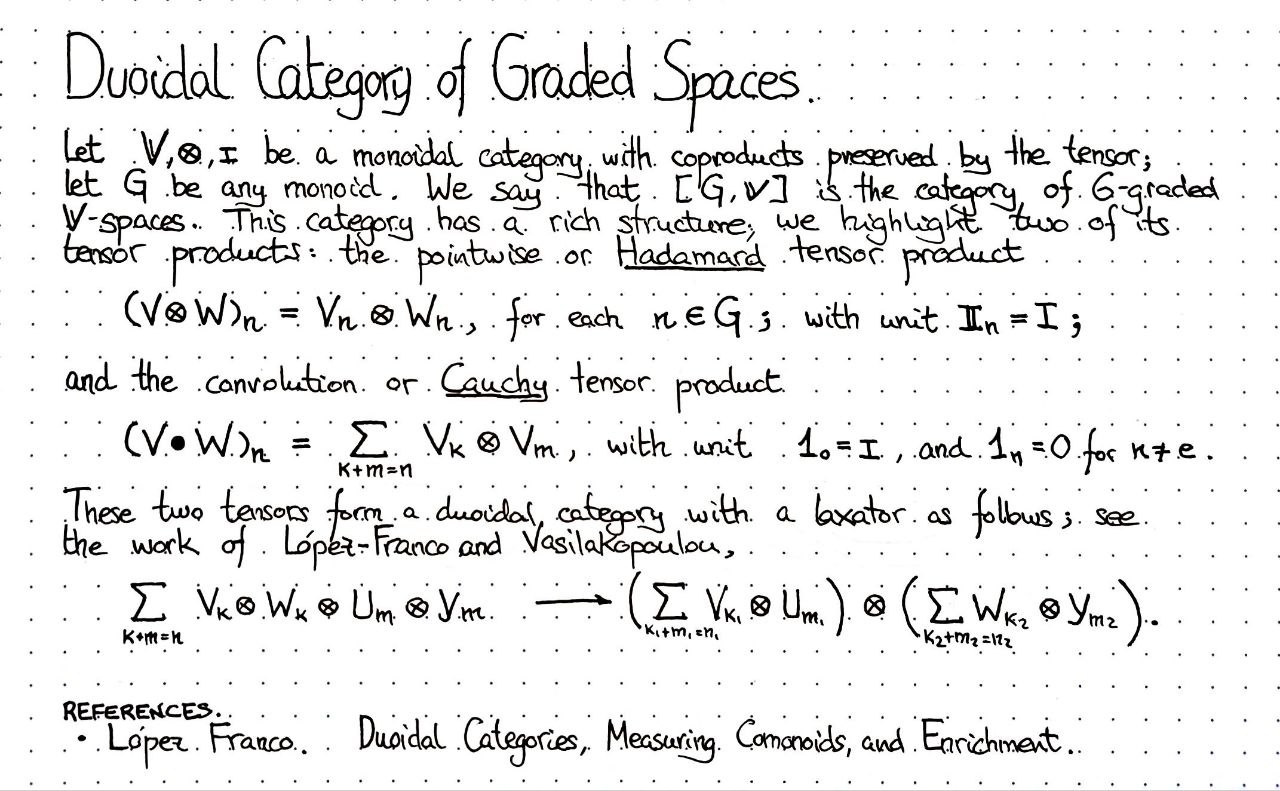 Duoidal Category of Graded Spaces.
Let V,⊗,I be a monoidal category with coproducts preserved by the tensor;
let G be any monoid. We say that [G,V] is the category of G-graded
V-spaces. This category has a rich structure; we highlight two of its
tensor products: the pointwise or Hadamard tensor product
(V⊗W)ₙ = Vₙ ⊗ Wₙ, for each n ∈ G; with unit 𝕀ₙ = I;
and the convolution or Cauchy tensor product
(V•W)ₙ = ∑_{k+m=n} Vₖ ⊗ Vₘ, with unit 1₀ = I, and 1ₙ = 0 for n ≠ e.
These two tensors form a duoidal category with a laxator as follows; see
the work of López-Franco and Vasilakopoulou,
∑_{k+m=n} Vₖ ⊗ Wₖ ⊗ Uₘ ⊗ Yₘ ⟶ (∑_{k₁+m₁=n₁} V_{k₁} ⊗ U_{m₁}) ⊗ (∑_{k₂+m₂=n₂} W_{k₂} ⊗ Y_{m₂}).
REFERENCES.
• López Franco. Duoidal Categories, Measuring Comonoids, and Enrichment.